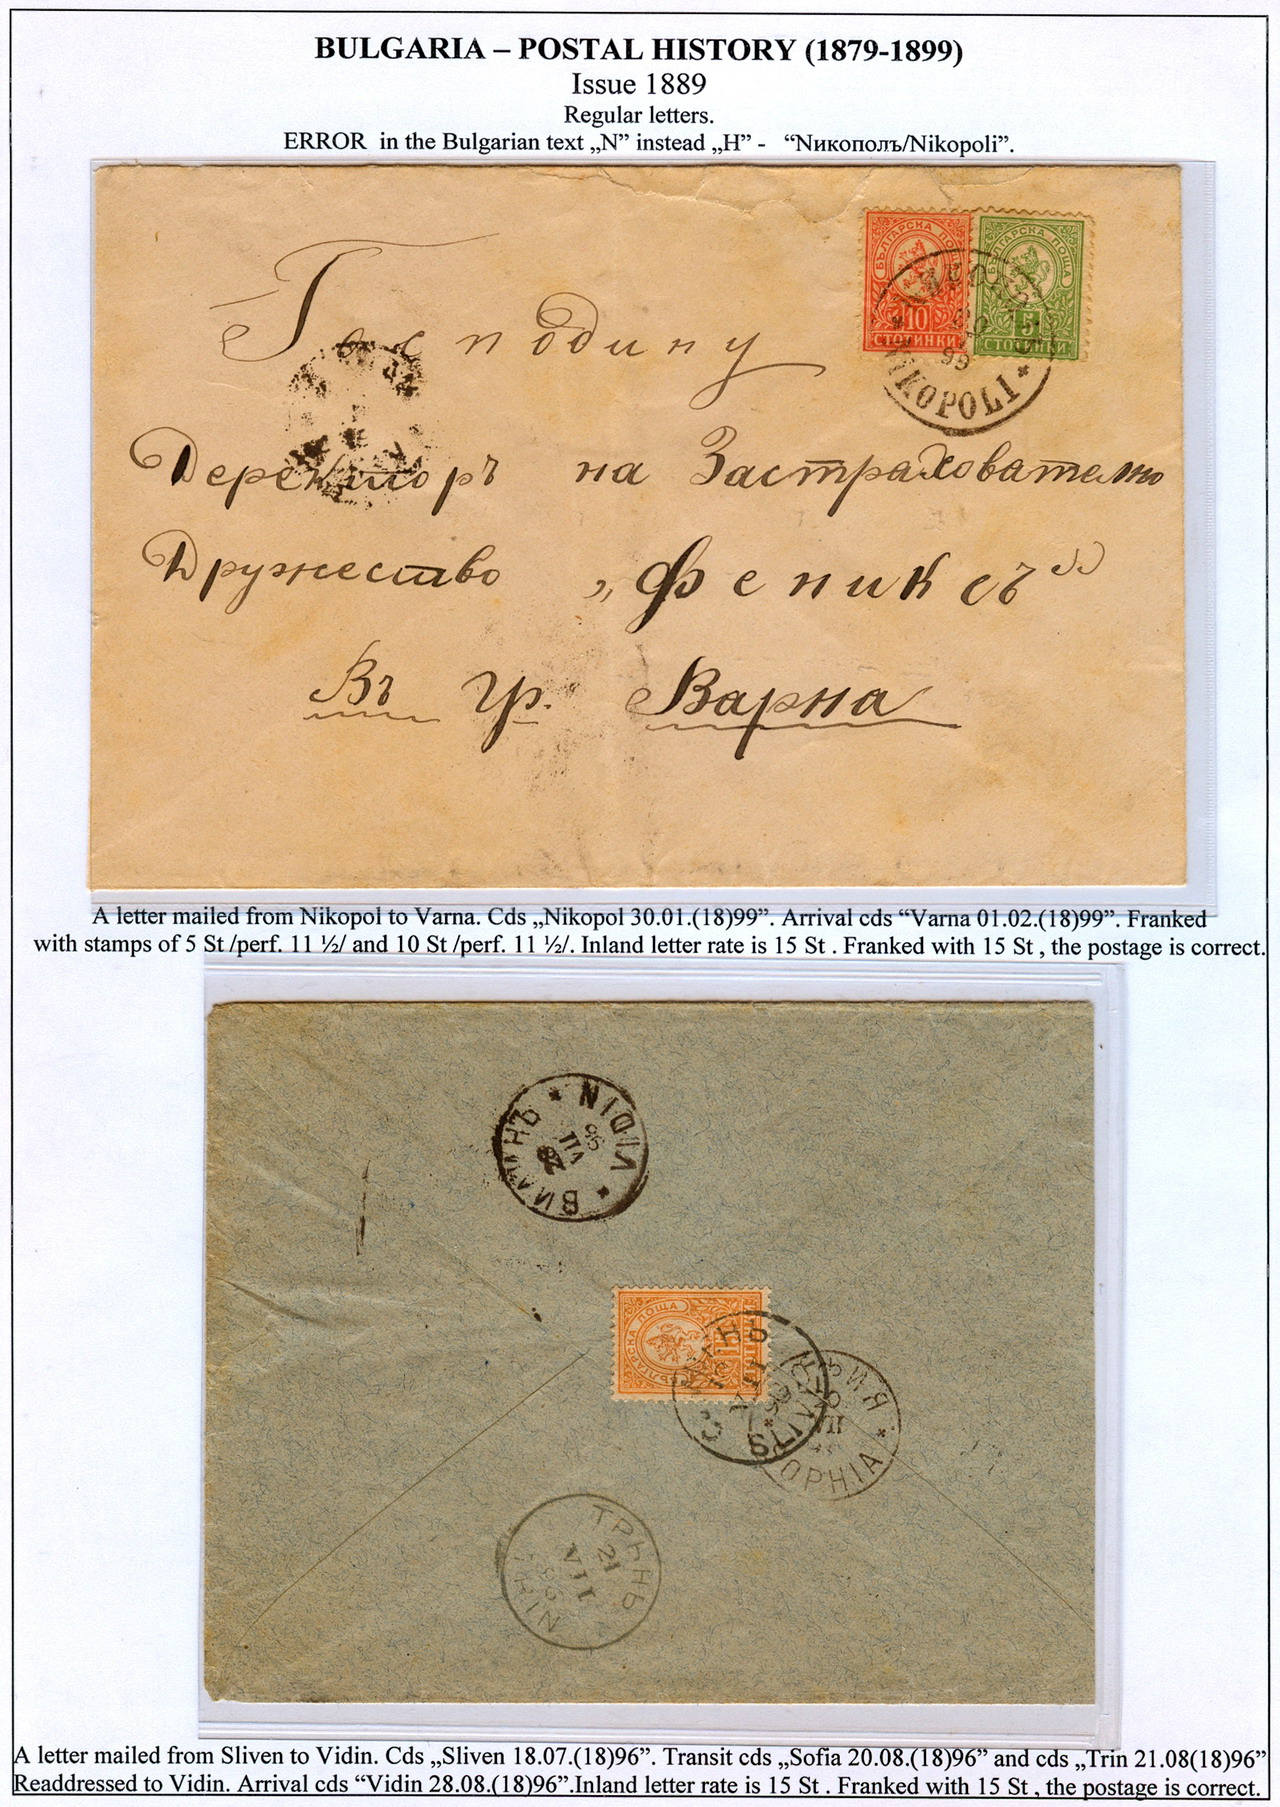 BULGARIA – POSTAL HISTORY (1879-1899)
Issue 1889
Regular letters.
ERROR in the Bulgarian text „N” instead „H” - “Nикополъ/Nikopoli”.
БЪЛГАРСКА ПОЩА
10
СТОТИНКИ
БЪЛГАРСКА ПОЩА
5
СТОТИНКИ
99
NIKOPOLI
Господину
Деректоръ на Застрахователно
Дружество „Фениксъ”
Въ гр. Варна
A letter mailed from Nikopol to Varna. Cds „Nikopol 30.01.(18)99”. Arrival cds “Varna 01.02.(18)99”. Franked
with stamps of 5 St /perf. 11 ½/ and 10 St /perf. 11 ½/. Inland letter rate is 15 St . Franked with 15 St , the postage is correct.
ВИДИНЪ
28
VII
96
VIDIN
БЪЛГАРСКА ПОЩА
15
VII
96
SLIV
VII
ОРHIA
ТРЪНЪ
21
VII
96
A letter mailed from Sliven to Vidin. Cds „Sliven 18.07.(18)96”. Transit cds „Sofia 20.08.(18)96” and cds „Trin 21.08(18)96”
Readdressed to Vidin. Arrival cds “Vidin 28.08.(18)96”.Inland letter rate is 15 St . Franked with 15 St , the postage is correct.